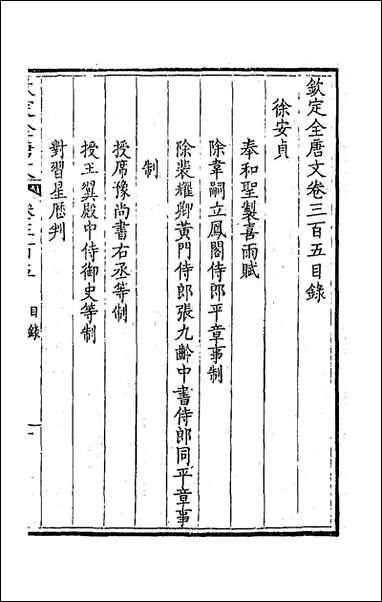 欽定全唐文卷三百五目錄
徐安貞
奉和聖製喜雨賦
除韋嗣立鳳閣侍郎平章事制
除裴耀卿黃門侍郎張九齡中書侍郎同平章事
制
授席豫尚書右丞等制
授王翼殿中侍御史等制
對習星厯判
欽定全唐文 卷三百五 目錄 一